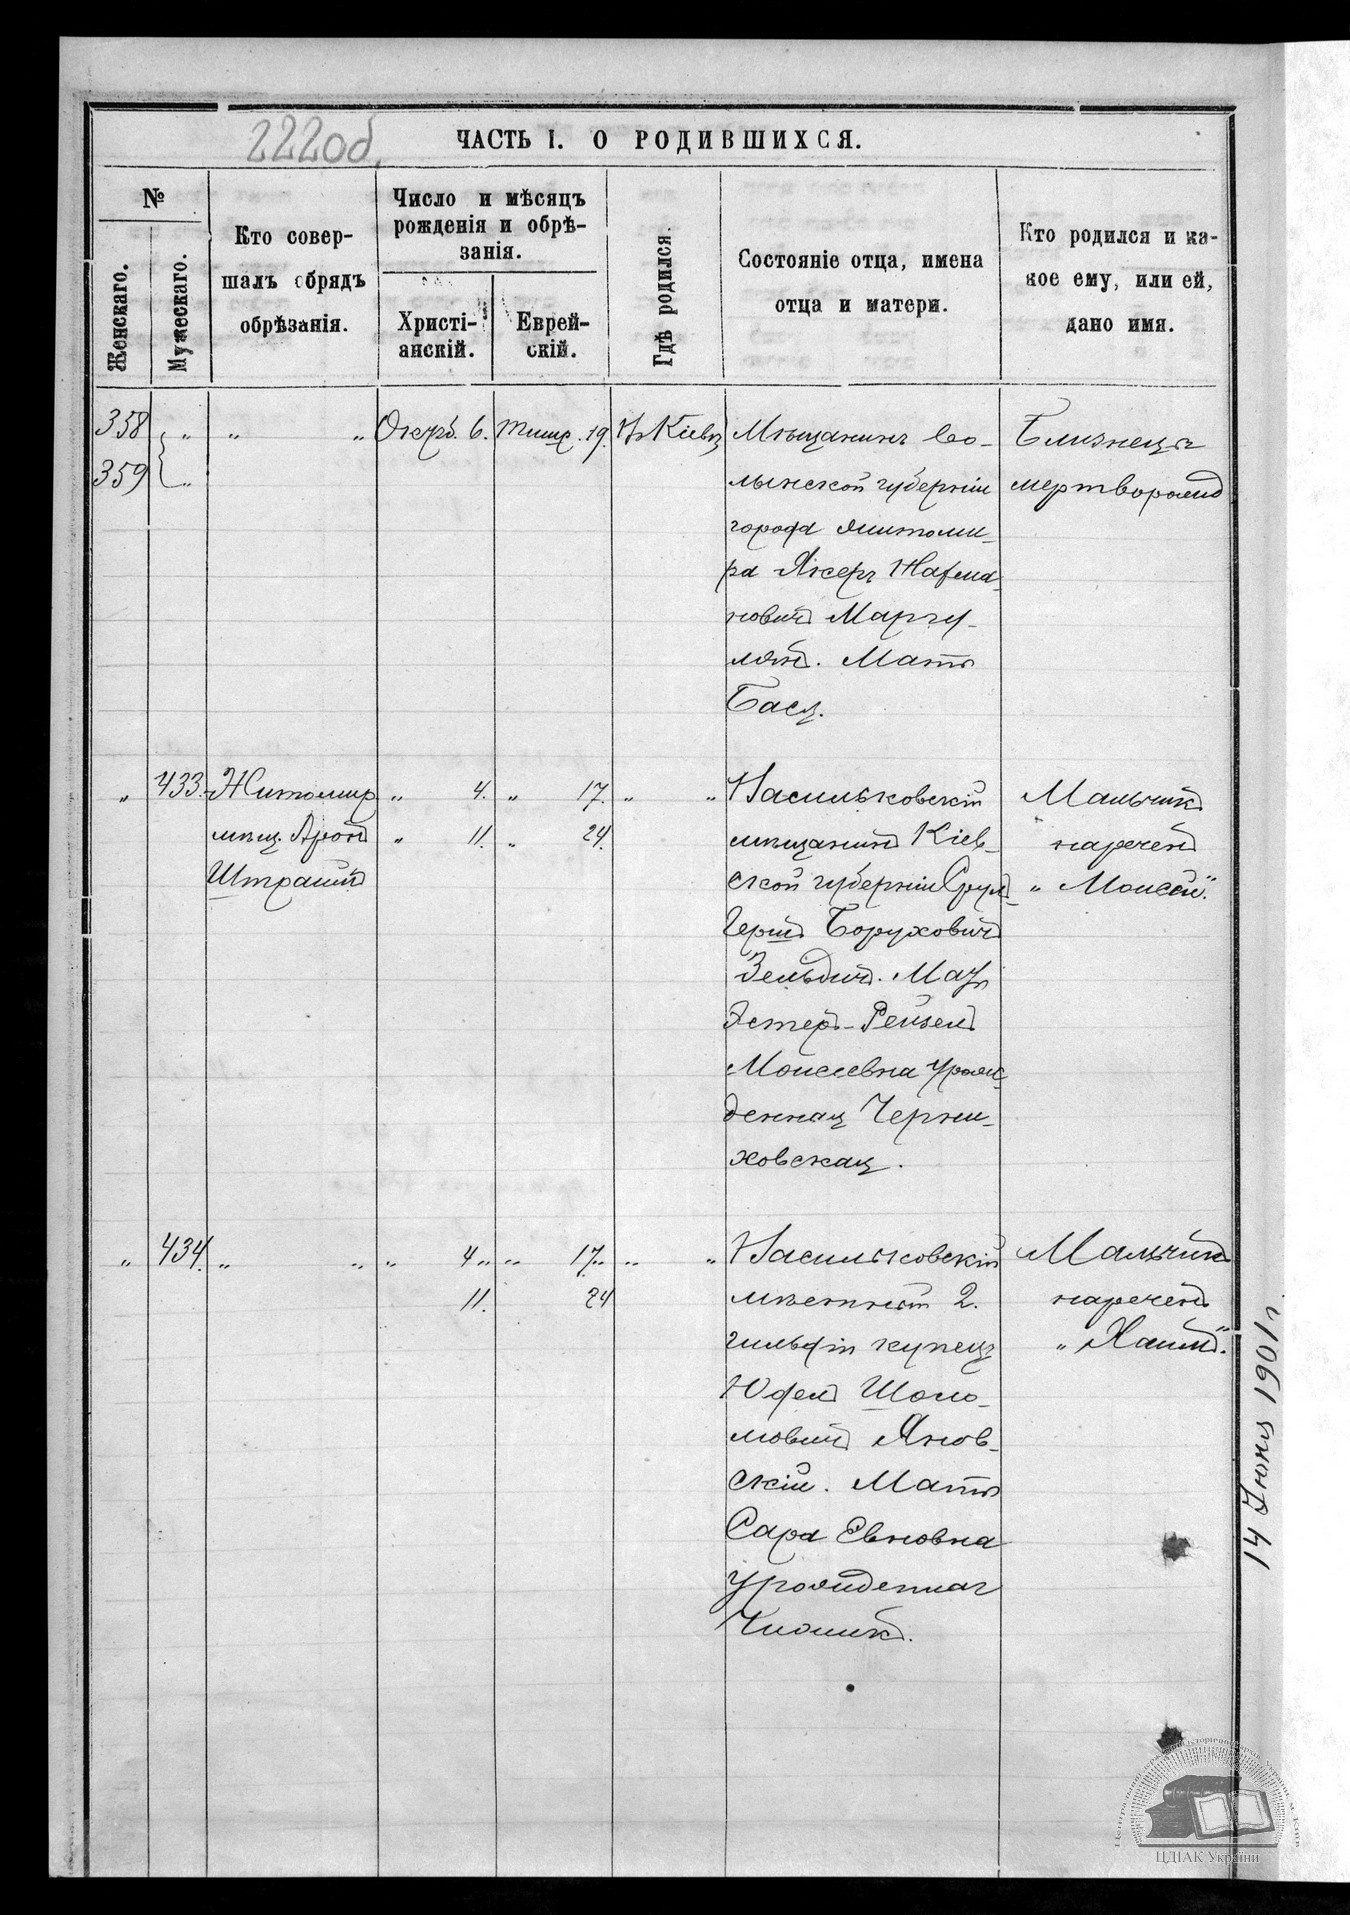 222 об.
ЧАСТЬ I. О РОДИВШИХСЯ.
№
Женскаго.
Мужескаго.
Кто совер-
шалъ обрядъ
обрѣзанія.
Число и мѣсяцъ
рожденія и обрѣ-
занія.
Христі-
анскій.
Еврей-
скій.
Гдѣ родился.
Состояніе отца, имена
отца и матери.
Кто родился и ка-
кое ему, или ей,
дано имя.
358 " " " Октяб. 6. Тишр. 19. Въ Кіевѣ
359 "
Мѣщанинъ Во-
лынской губерніи
города Житоми-
ра Лейзеръ
новичъ Маргу-
лян. Мать
Бася.
Близнецы
мертворожд
" 433. Житомир " 4. " 17. " "
мѣщ. Аронъ " 11. " 24.
Васильковскій
мѣщанинъ Кіев-
ской губерніи Срул-
Герш Борухович
Зельдич. Мать
Эстер-Рейзел
Моисеевна урож-
денная Черни-
ховская.
Мальчик
наречен
" Моисей".
" 434. " " " 4 " " 17. " " "
11. 24
Васильковскій
мѣстный 2.
гильдіи купецъ
Юдел Шоло-
мович Янов-
скій. Мать
Сара Евновна
урожденная
Мальчик
наречен
" Хаим".
14 Июня 1901 г.
ЦДІАК України